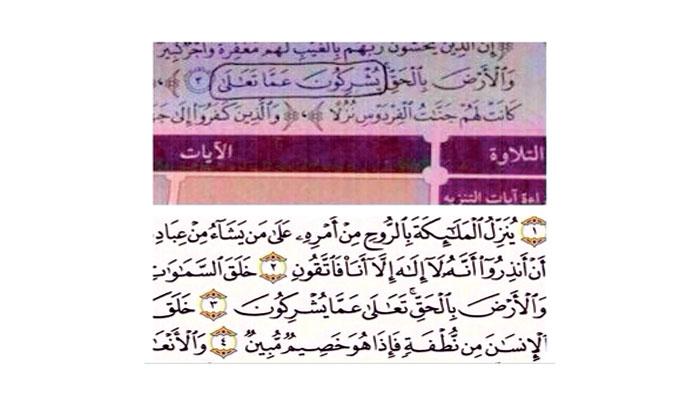 ﴿إِنَّ الَّذِينَ يَخْشَوْنَ رَبَّهُم بِالْغَيْبِ لَهُم مَّغْفِرَةٌ وَأَجْرٌ كَبِيرٌ
وَالْأَرْضَ بِالْحَقِّ يُشْرِكُونَ عَمَّا تَعَالَىٰ ٣ ﴾،
كَانَتْ لَهُمْ جَنَّاتُ الْفِرْدَوْسِ نُزُلًا ﴾، ﴿وَالَّذِينَ كَفَرُوا إِلَىٰ جَهَـ
التلاوة الآيات
اءة آيات التنزيه
١ يُنَزِّلُ الْمَلَائِكَةَ بِالرُّوحِ مِنْ أَمْرِهِ عَلَىٰ مَن يَشَاءُ مِنْ عِبَادِهِ
أَنْ أَنذِرُوا أَنَّهُ لَا إِلَٰهَ إِلَّا أَنَا فَاتَّقُونِ ٢ خَلَقَ السَّمَاوَاتِ
وَالْأَرْضَ بِالْحَقِّ ۚ تَعَالَىٰ عَمَّا يُشْرِكُونَ ٣ خَلَقَ
الْإِنسَانَ مِن نُّطْفَةٍ فَإِذَا هُوَ خَصِيمٌ مُّبِينٌ ٤ وَالْأَنْعَا